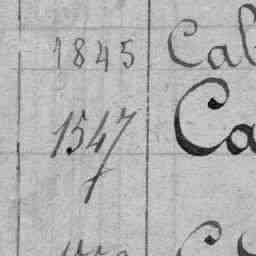 1845 Cal
1547 Ca